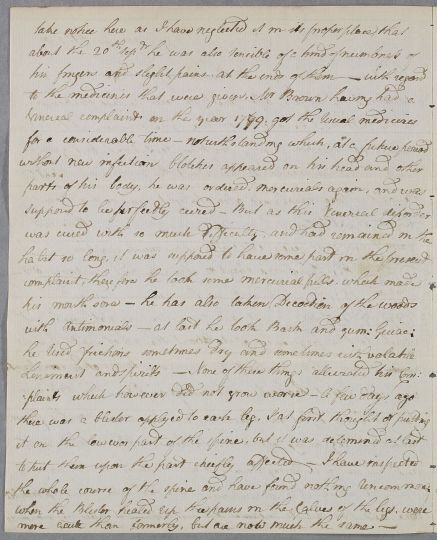 take notice here as I have neglected it in its proper place, that
about the 20th Sepr he was also sensible of a kind of numbness of
his fingers and slight pains at the ends of them — with regard
to the medicines that were given, Mr Brown having had a
Venereal complaint in the year 1779, got the usual medicines
for a considerable time — notwithstanding which, at a future period
without new infection blotches appeared on his head and other
parts of his body, he was ordered mercurials again, and was
supposed to be perfectly cured — But as this Venereal disorder
was cured with so much difficulty, and had remained in the
habit so long, it was supposed to have some part in the present
complaint, therefore he took some mercurial pills, which made
his mouth sore — he has also taken Decoction of the woods
with Antimonials — at last he took Bark and gum: Guiac:
he used frictions sometimes dry and sometimes with volatile
Liniment and spirits — None of these things alleviated his Com:
:plaints which however did not grow worse — A few days ago
there was a blister applyed to each leg, I at first thought of putting
it on the lower part of the spine, but it was determined at last
to put them upon the part chiefly affected — I have inspected
the whole course of the spine and have found nothing uncommon
when the Blister healed up the pains in the Calves of the legs were
more acute than formerly, but are now much the same —